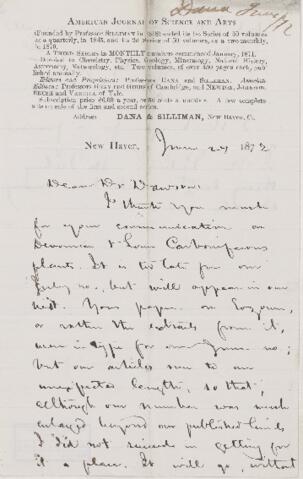 Dana June/72
AMERICAN JOURNAL OF SCIENCE AND ARTS
(Founded by Professor SILLIMAN in 1818) ended its 1st Series of 50 volumes
as a quarterly, in 1845, and its 2d Series of 50 volumes, as a two-monthly,
in 1870.
A THIRD SERIES in MONTHLY numbers commenced January, 1871.
Devoted to Chemistry, Physics, Geology, Mineralogy, Natural History,
Astronomy, Meteorology, etc. Two volumes, of over 450 pages each, pub-
lished annually.
Editors and Proprietors: Professors DANA and SILLIMAN. Associate
Editors: Professors GRAY and GIBBS of Cambridge, and NEWTON, JOHNSON,
BRUSH and VERRILL of Yale.
Subscription price $6.00 a year, or 50 cents a number. A few complete
sets on sale of the first and second series.
Address DANA & SILLIMAN, NEW HAVEN, Ct.
NEW HAVEN, June 24 1872
Dear Dr Dawson:
I thank you much
for your communication on
Devonian & Lower Carboniferous
plants. It is too late for our
July no., but will appear in our
next. Your paper on Eozoon,
or rather the extracts from it,
were in type for our June no;
but our articles ran to an
unexpected length, so that,
although our number was much
enlarged beyond our published limits
I did not succeed in getting for
it a place. It will go, without